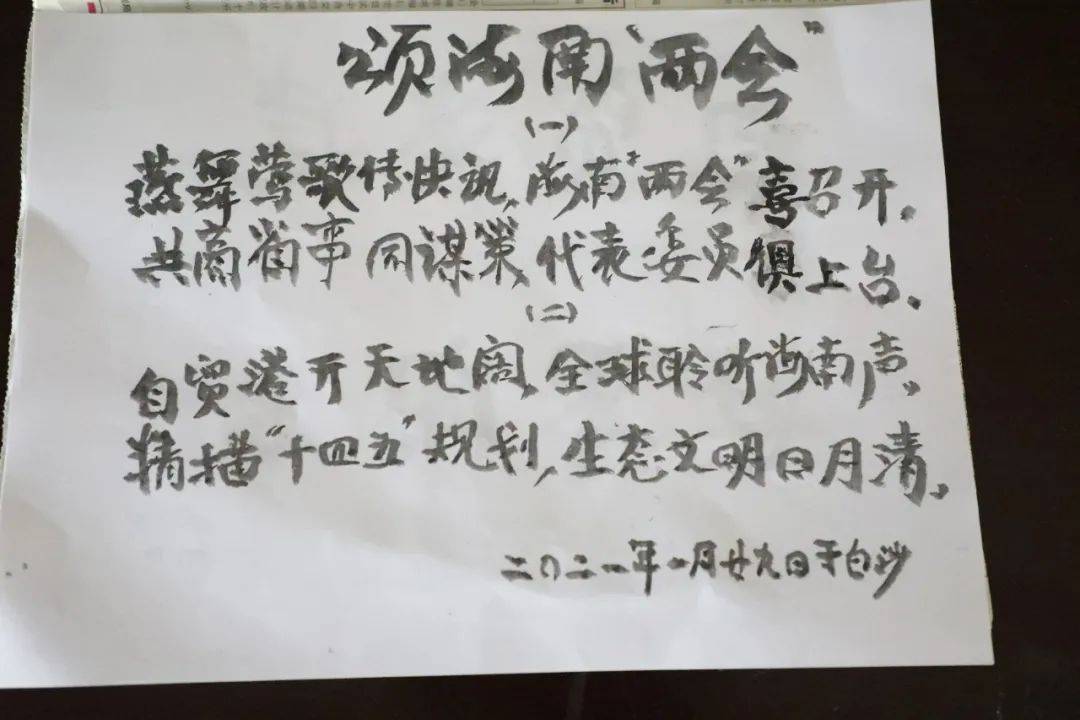 颂海南“两会”
（一）
燕舞莺歌情快祝，海南“两会”喜召开，
共商省事同谋策，代表委员俱上台。
（二）
自贸港开天地阔，全球聆听海南声，
精描“十四五”规划，生态文明日月清。
二〇二一年一月廿九日于白沙